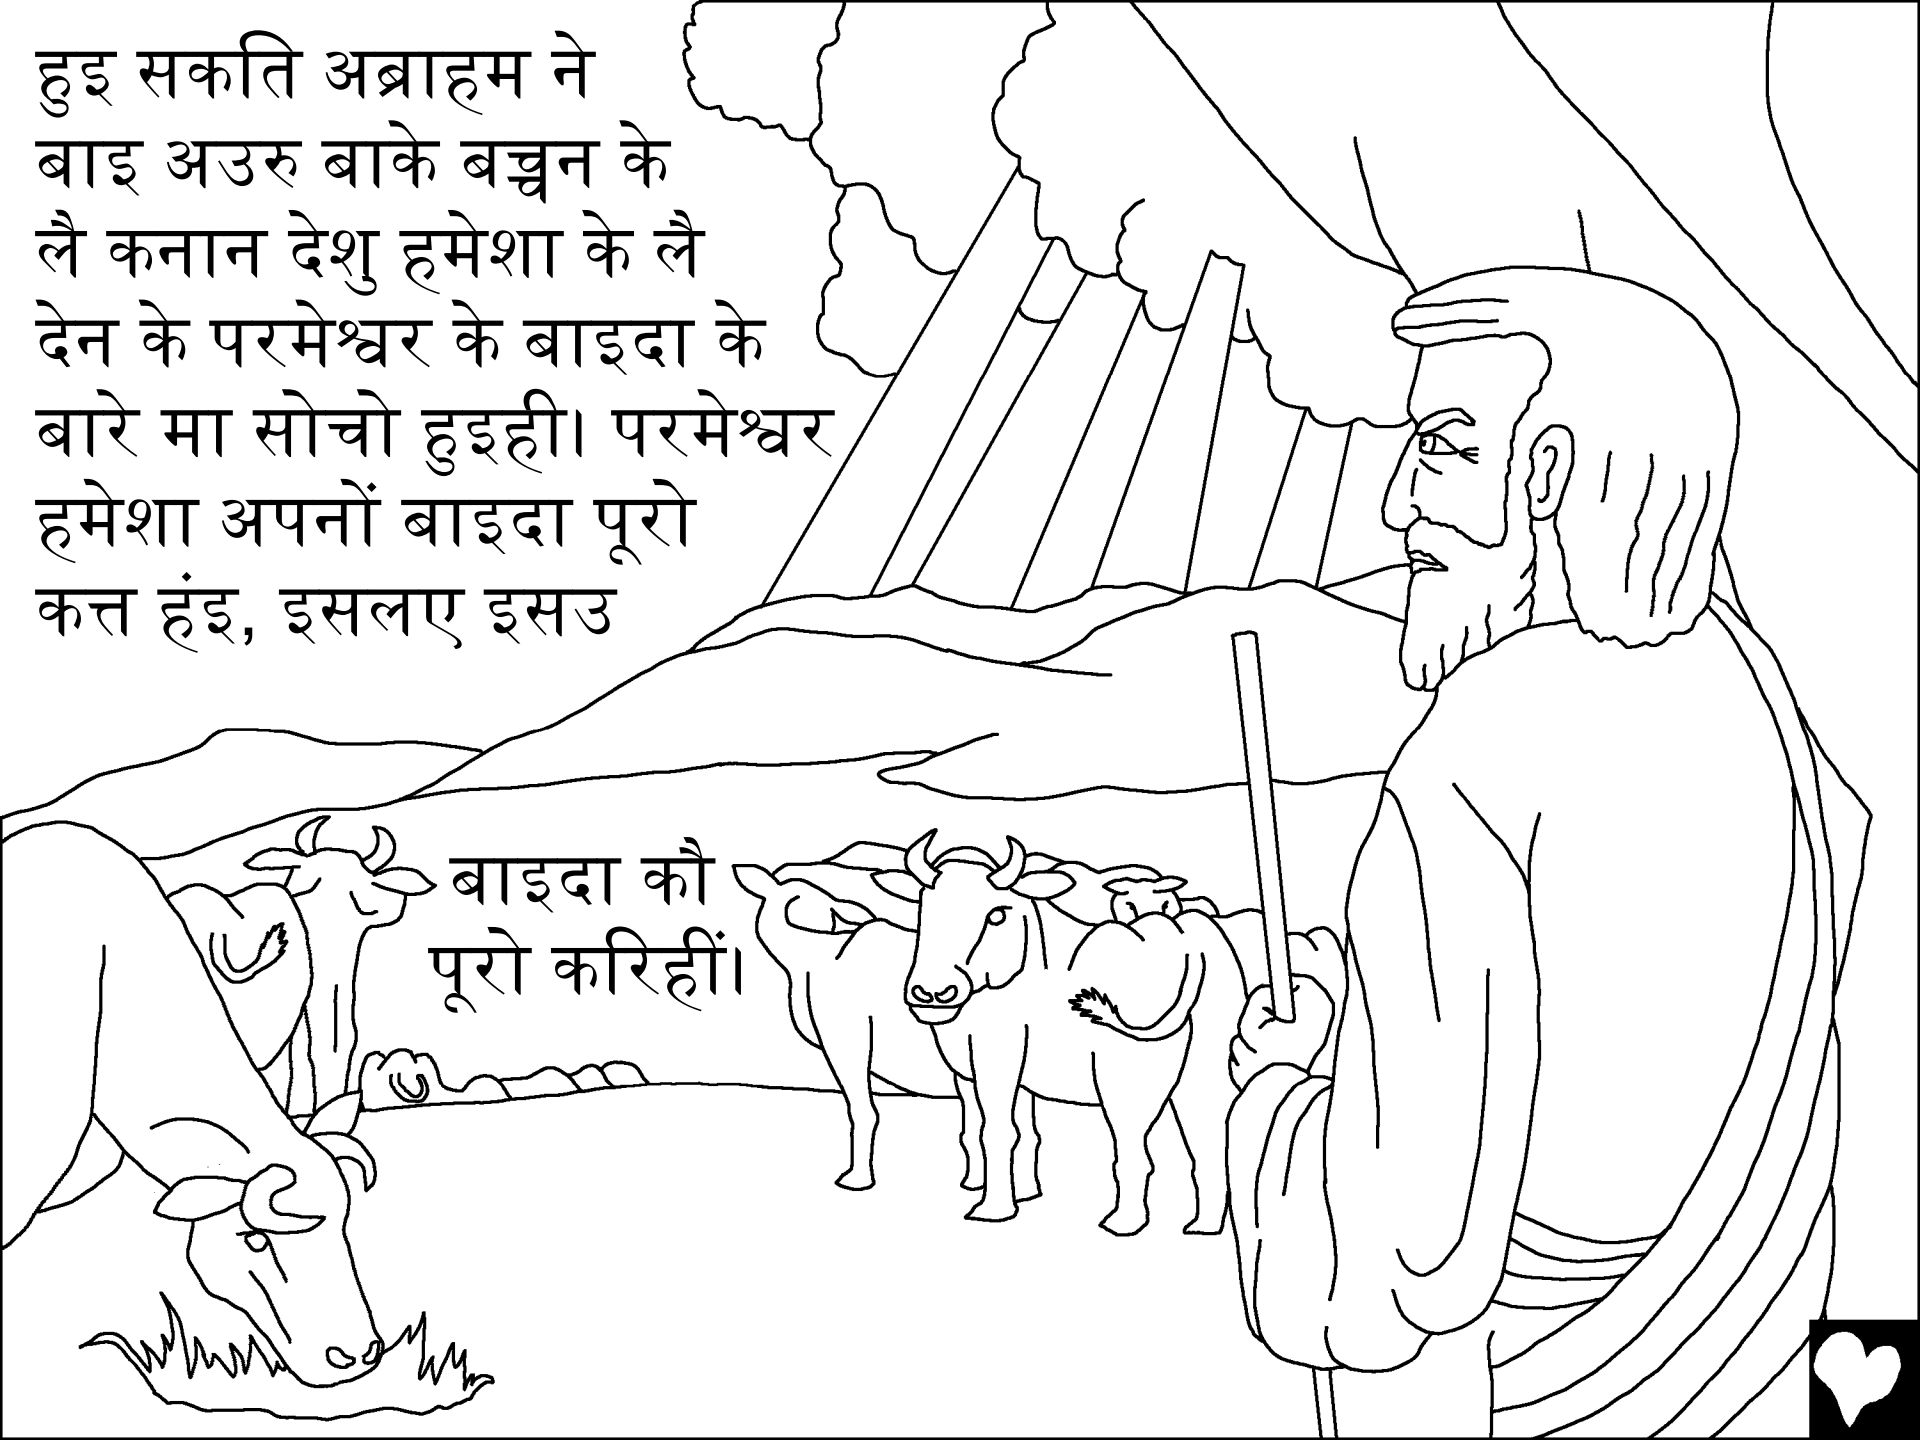 हुइ सकति अब्राहम ने
बाइ अउरु बाके बच्चन के
लै कनान देशु हमेशा के लै
देन के परमेश्वर के बाइदा के
बारे मा सोचो हुइही। परमेश्वर
हमेशा अपनों बाइदा पूरो
कत्त हंइ, इसलए इसउ
बाइदा कौ
पूरो करिहीं।